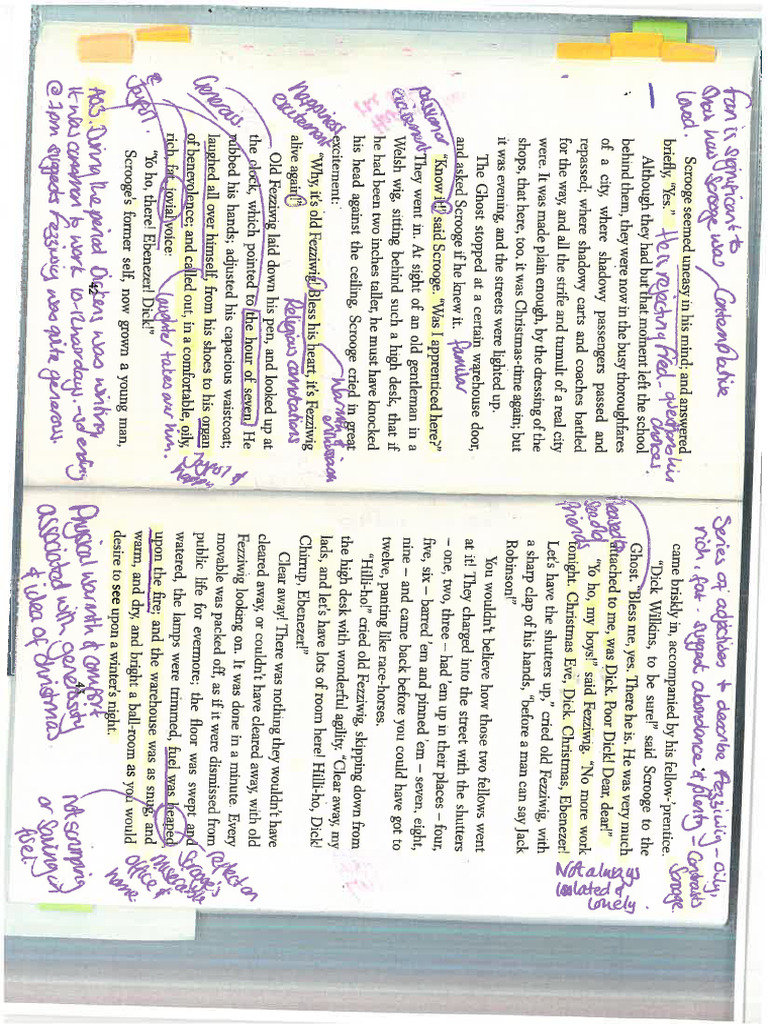 Fan is significant to
Shows how Scrooge was
loved.
Contemplative
Scrooge seemed uneasy in his mind; and answered
briefly, "Yes."
He is rejecting Fred.
chances.
Although they had but that moment left the school
behind them, they were now in the busy thoroughfares
of a city, where shadowy passengers passed and
repassed; where shadowy carts and coaches battled
for the way, and all the strife and tumult of a real city
were. It was made plain enough, by the dressing of the
shops, that here, too, it was Christmas-time again; but
it was evening, and the streets were lighted up.
The Ghost stopped at a certain warehouse door,
and asked Scrooge if he knew it.
familiar
excitement
"Know it!" said Scrooge. "Was I apprenticed here?"
They went in. At sight of an old gentleman in a
Welsh wig, sitting behind such a high desk, that if
he had been two inches taller, he must have knocked
his head against the ceiling, Scrooge cried in great
excitement:
Happiness
excitement
Warmth
enthusiasm
"Why, it's old Fezziwig! Bless his heart, it's Fezziwig
alive again!"
Religious connotations
Old Fezziwig laid down his pen, and looked up at
the clock, which pointed to the hour of seven. He
rubbed his hands; adjusted his capacious waistcoat;
laughed all over himself, from his shoes to his organ
of benevolence; and called out, in a comfortable, oily,
rich, fat, jovial voice:
Generous
Joyful &
happy
Joyful.
Laughter takes over him.
"Yo ho, there! Ebenezer! Dick!"
Scrooge's former self, now grown a young man,
42
A03. During the period Dickens was writing
it was common to work 10-12 hour days - so ending
@ 7pm suggests Fezziwig was quite generous.
Series of adjectives to describe Fezziwig - oily,
rich, fat suggest abundance & plenty = Contrasts
Scrooge.
came briskly in, accompanied by his fellow-'prentice.
"Dick Wilkins, to be sure!" said Scrooge to the
Ghost. "Bless me, yes. There he is. He was very much
attached to me, was Dick. Poor Dick! Dear, dear!"
friends
Not always
isolated &
lonely.
"Yo ho, my boys!" said Fezziwig. "No more work
tonight. Christmas Eve, Dick. Christmas, Ebenezer!
Let's have the shutters up," cried old Fezziwig, with
a sharp clap of his hands, "before a man can say Jack
Robinson!"
You wouldn't believe how those two fellows went
at it! They charged into the street with the shutters
– one, two, three – had 'em up in their places – four,
five, six – barred 'em and pinned 'em – seven, eight,
nine – and came back before you could have got to
twelve, panting like race-horses.
"Hilli-ho!" cried old Fezziwig, skipping down from
the high desk with wonderful agility. "Clear away, my
lads, and let's have lots of room here! Hilli-ho, Dick!
Chirrup, Ebenezer!"
Clear away! There was nothing they wouldn't have
cleared away, or couldn't have cleared away, with old
Fezziwig looking on. It was done in a minute. Every
movable was packed off, as if it were dismissed from
public life for evermore; the floor was swept and
watered, the lamps were trimmed, fuel was heaped
upon the fire; and the warehouse was as snug, and
warm, and dry, and bright a ball-room as you would
desire to see upon a winter's night.
reflection
Scrooge's
miserable
office &
home.
43
Physical warmth & comfort
associated with generosity
& idea of Christmas.
Not scrimping
or saving on
fuel.